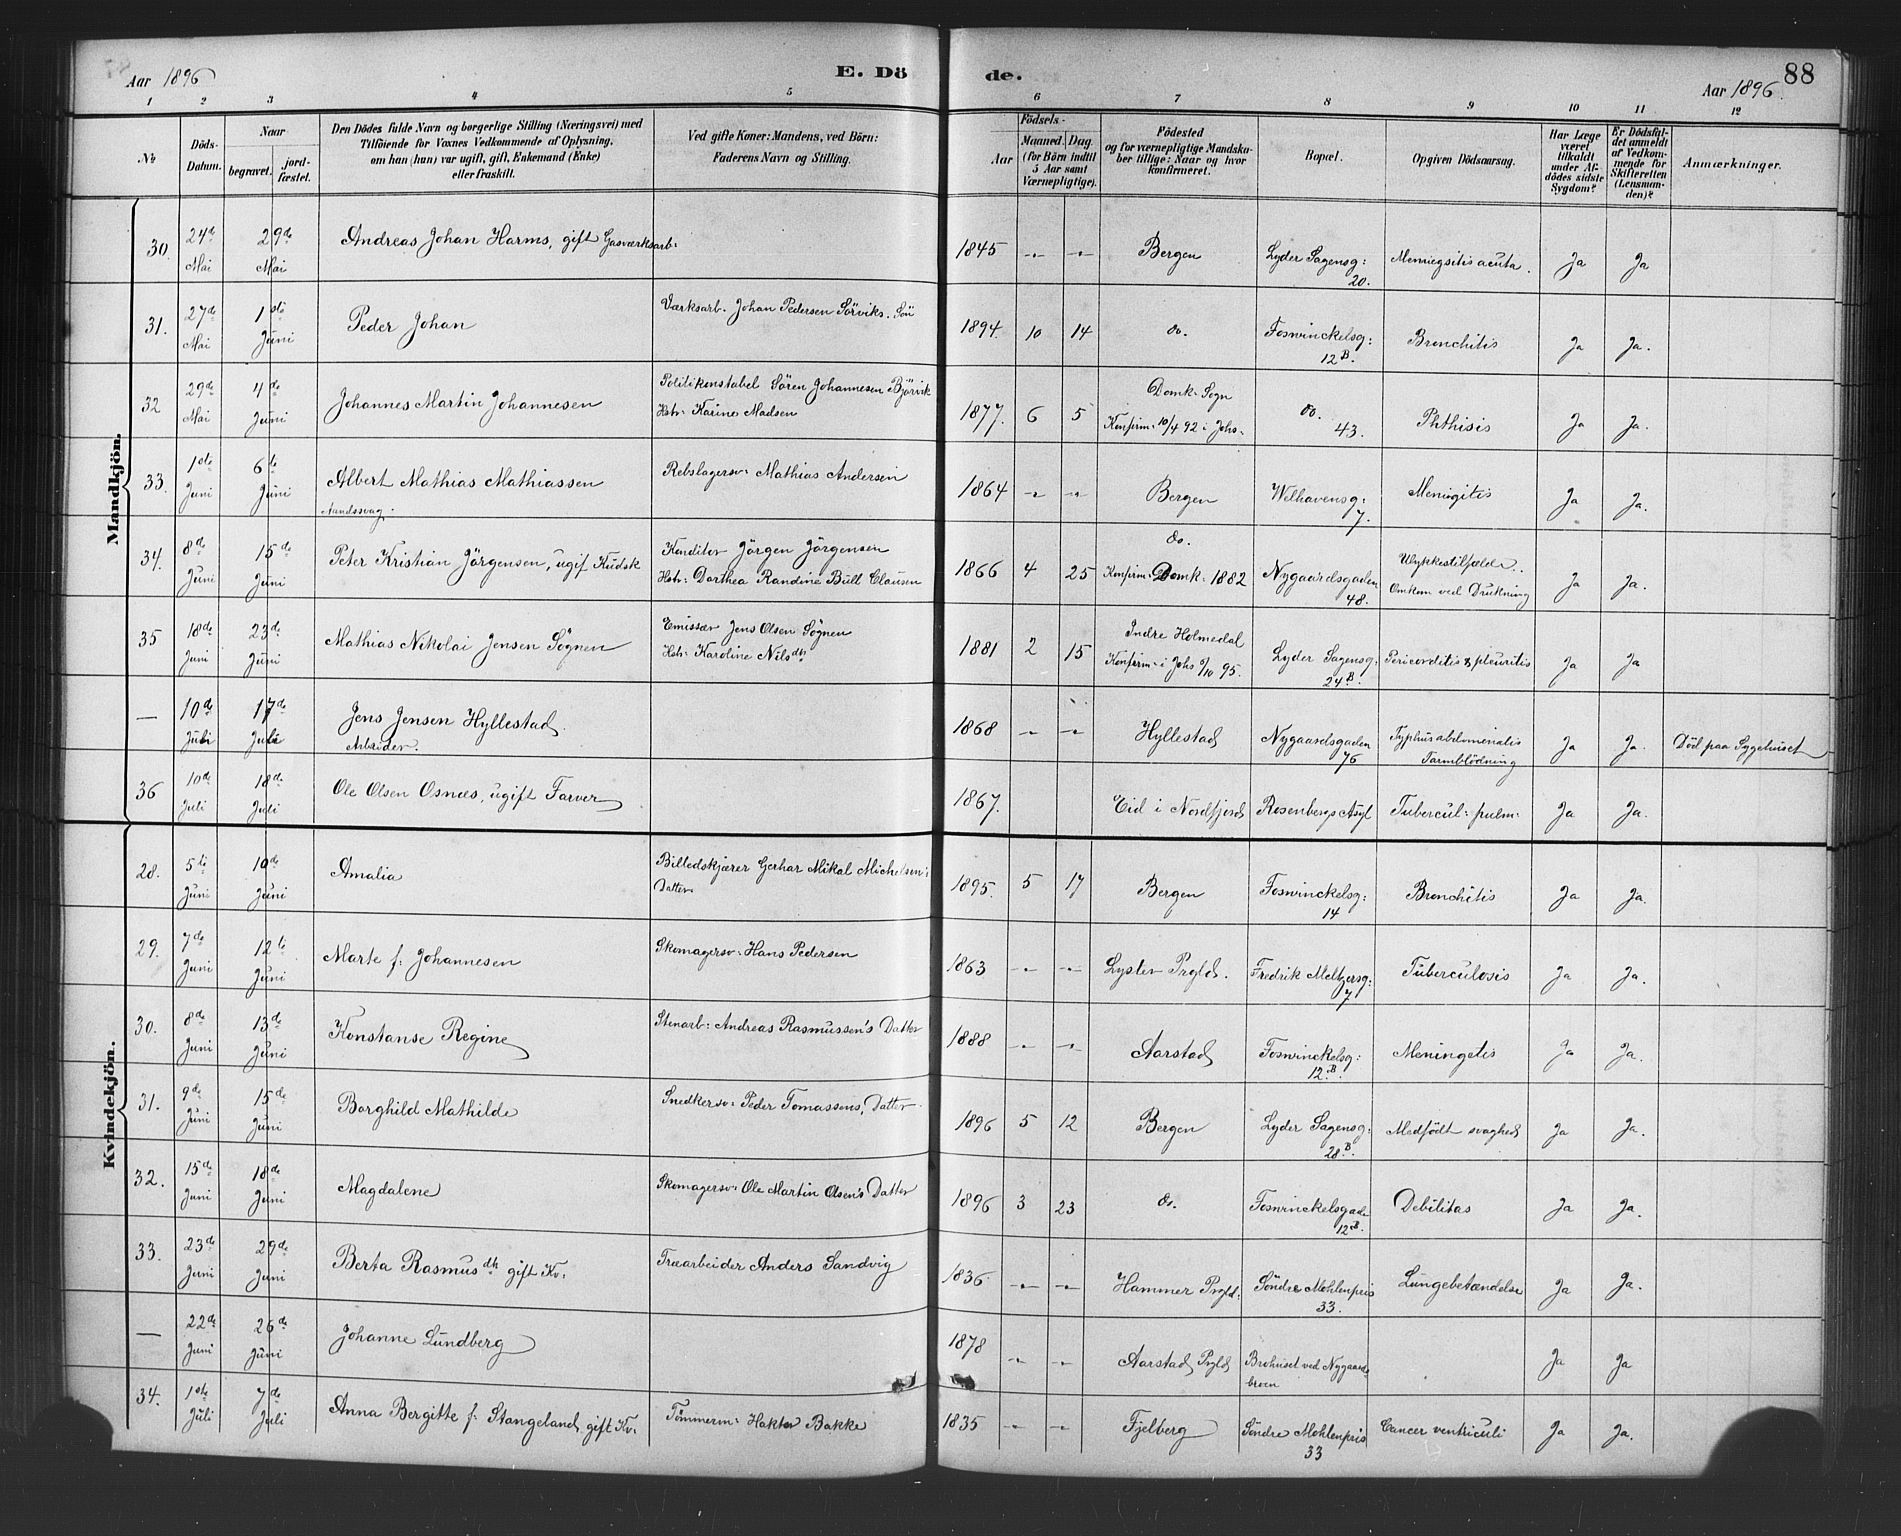 Aar 1896
E. Dö de.
Aar 1896.
88
1 2 3 4 5 6 7 8 9 10 11 12
No
Döds-Datum.
Naar
begravet.
jord-fæstet.
Den Dödes fulde Navn og borgerlige Stilling (Næringsvei) med
Tilföiende for Voxnes Vedkommende af Oplysning,
om han (hun) var ugift, gift, Enkemand (Enke)
eller fraskilt.
Ved gifte Koner: Mandens, ved Börn:
Faderens Navn og Stilling.
Födsels-
Aar
Maaned. Dag.
(for Börn indtil
5 Aar samt
Værnepligtige).
Födested
og for værnepligtige Mandska-
ber tillige: Naar og hvor
konfirmeret.
Bopæl.
Opgiven Dödsaarsag.
Har Læge
været
tilkaldt
under Af-
dödes sidste
Sygdom?
Er Dödsfal-
det anmeldt
af Vedkom-
mende for
Skifteretten
(Lensman-
den)?
Anmærkninger.
Mandkjön.
30. 24de Mai 29de Mai Andreas Johan Harms, gift Gasværksarb: 1845 -"- -"- Bergen Lyder Sagensg: 20. Meniegsitis acuta. Ja Ja
31. 27de Mai 1ste Juni Peder Johan Værksarb. Johan Pedersen Sörviks. Sön 1894. 10 14 do. Fosvinckelsg: 12B. Bronchitis Ja Ja.
32 29de Mai 4de Juni Johannes Martin Johannesen Politikonstabel Sören Johannesen Björvik
Hstr: Karine Madsen 1877. 6 5 Domk. Sogn
Konfirm: 10/4 92 i Johs- do. 43. Phthisis Ja Ja.
33. 1ste Juni 6te Juni Albert Mathias Mathiassen
Aandssvag. Rebslagersv: Mathias Andersen 1864 -"- -"- Bergen Welhavensg: 7. Meniegitis Ja Ja.
34. 8de Juni 15de Juni Peter Kristian Jörgensen, ugif Kudsk Konditor Jörgen Jörgensen
Hstr: Dorthea Randine Bull Clausen 1866 4 25 do.
Konfirm: Domk: 1882 Nygaardsgaden 48. Ulykkestilfælde.
Omkom ved Drukning Ja Ja.
35 18de Juni 23de Juni Mathias Nikolai Jensen Sögnen Emissær Jens Olsen Sögnen
Hstr: Karoline Nilsdtr 1881 2 15 Indre Holmedal
Konfirm: i Johs 6/10 95. Lyder Sagensg: 24B. Pericorditis & pleuritis Ja Ja
— 10de Juli 17de Juli Jens Jensen Hyllestad.
Arbeider. 1868 -"- -"- Hyllestad Nygaardsgaden 76 Typhus abdomenalis
Tarmblödning Ja Ja. Död paa Sygehuset
36 10de Juli 18de Juli Ole Olsen Osnæs, ugift Farver 1867. Eid i Nordfjord Rosenbergs Asyl Tubercul: pulm: Ja Ja.
Kvindekjön.
28. 5te Juni 10de Juni Amalia Billedskjærer Gerhar Mikal Michelsen's
Datter 1895. 5 17 Bergen Fosvinckelsg: 14 Bronchitis Ja Ja.
29. 7de Juni 12te Juni Marte f: Johannesen Skomagersv: Hans Pedersen 1863 -"- -"- Lyster Prgld. Fredrik Meltzersg: 7 Tuberculosis Ja Ja.
30. 8de Juni 13de Juni Konstanse Regine Stenarb: Andreas Rasmussen's Datter 1888 -"- -"- Aarstad Fosvinckelsg: 12B. Meningetis Ja Ja.
31. 9de Juni 15de Juni Borghild Mathilde Snedkersv: Peder Tomassens, Datter. 1896 5 12 Bergen Lyder Sagensg: 28B. Medfödt svaghed Ja Ja.
32. 15de Juni 18de Juni Magdalene Skomagersv: Ole Martin Olsen's Datter 1896 3 23 do. Fosvinckelsgade 12B. Debilitas Ja Ja.
33. 23de Juni 29de Juni Berta Rasmusdtr gift Kv: Træarbeider Anders Sandvig 1836. -"- -"- Hammer Prgld: Söndre Mohlenpris 33. Lungebetændelse Ja Ja.
— 22de Juni 26de Juni Johanne Lundberg 1878 -"- -"- Aarstad Prgld Brohuset ved Nygaards-
broen Ja Ja
34. 1ste Juli 7de Juli Anna Bergitte f: Stangeland, gift Kv: Tömmerm: Haktor Bakke 1835 -"- -"- Fjelberg Söndre Mohlenpris 33 Cancer ventriculi Ja Ja.